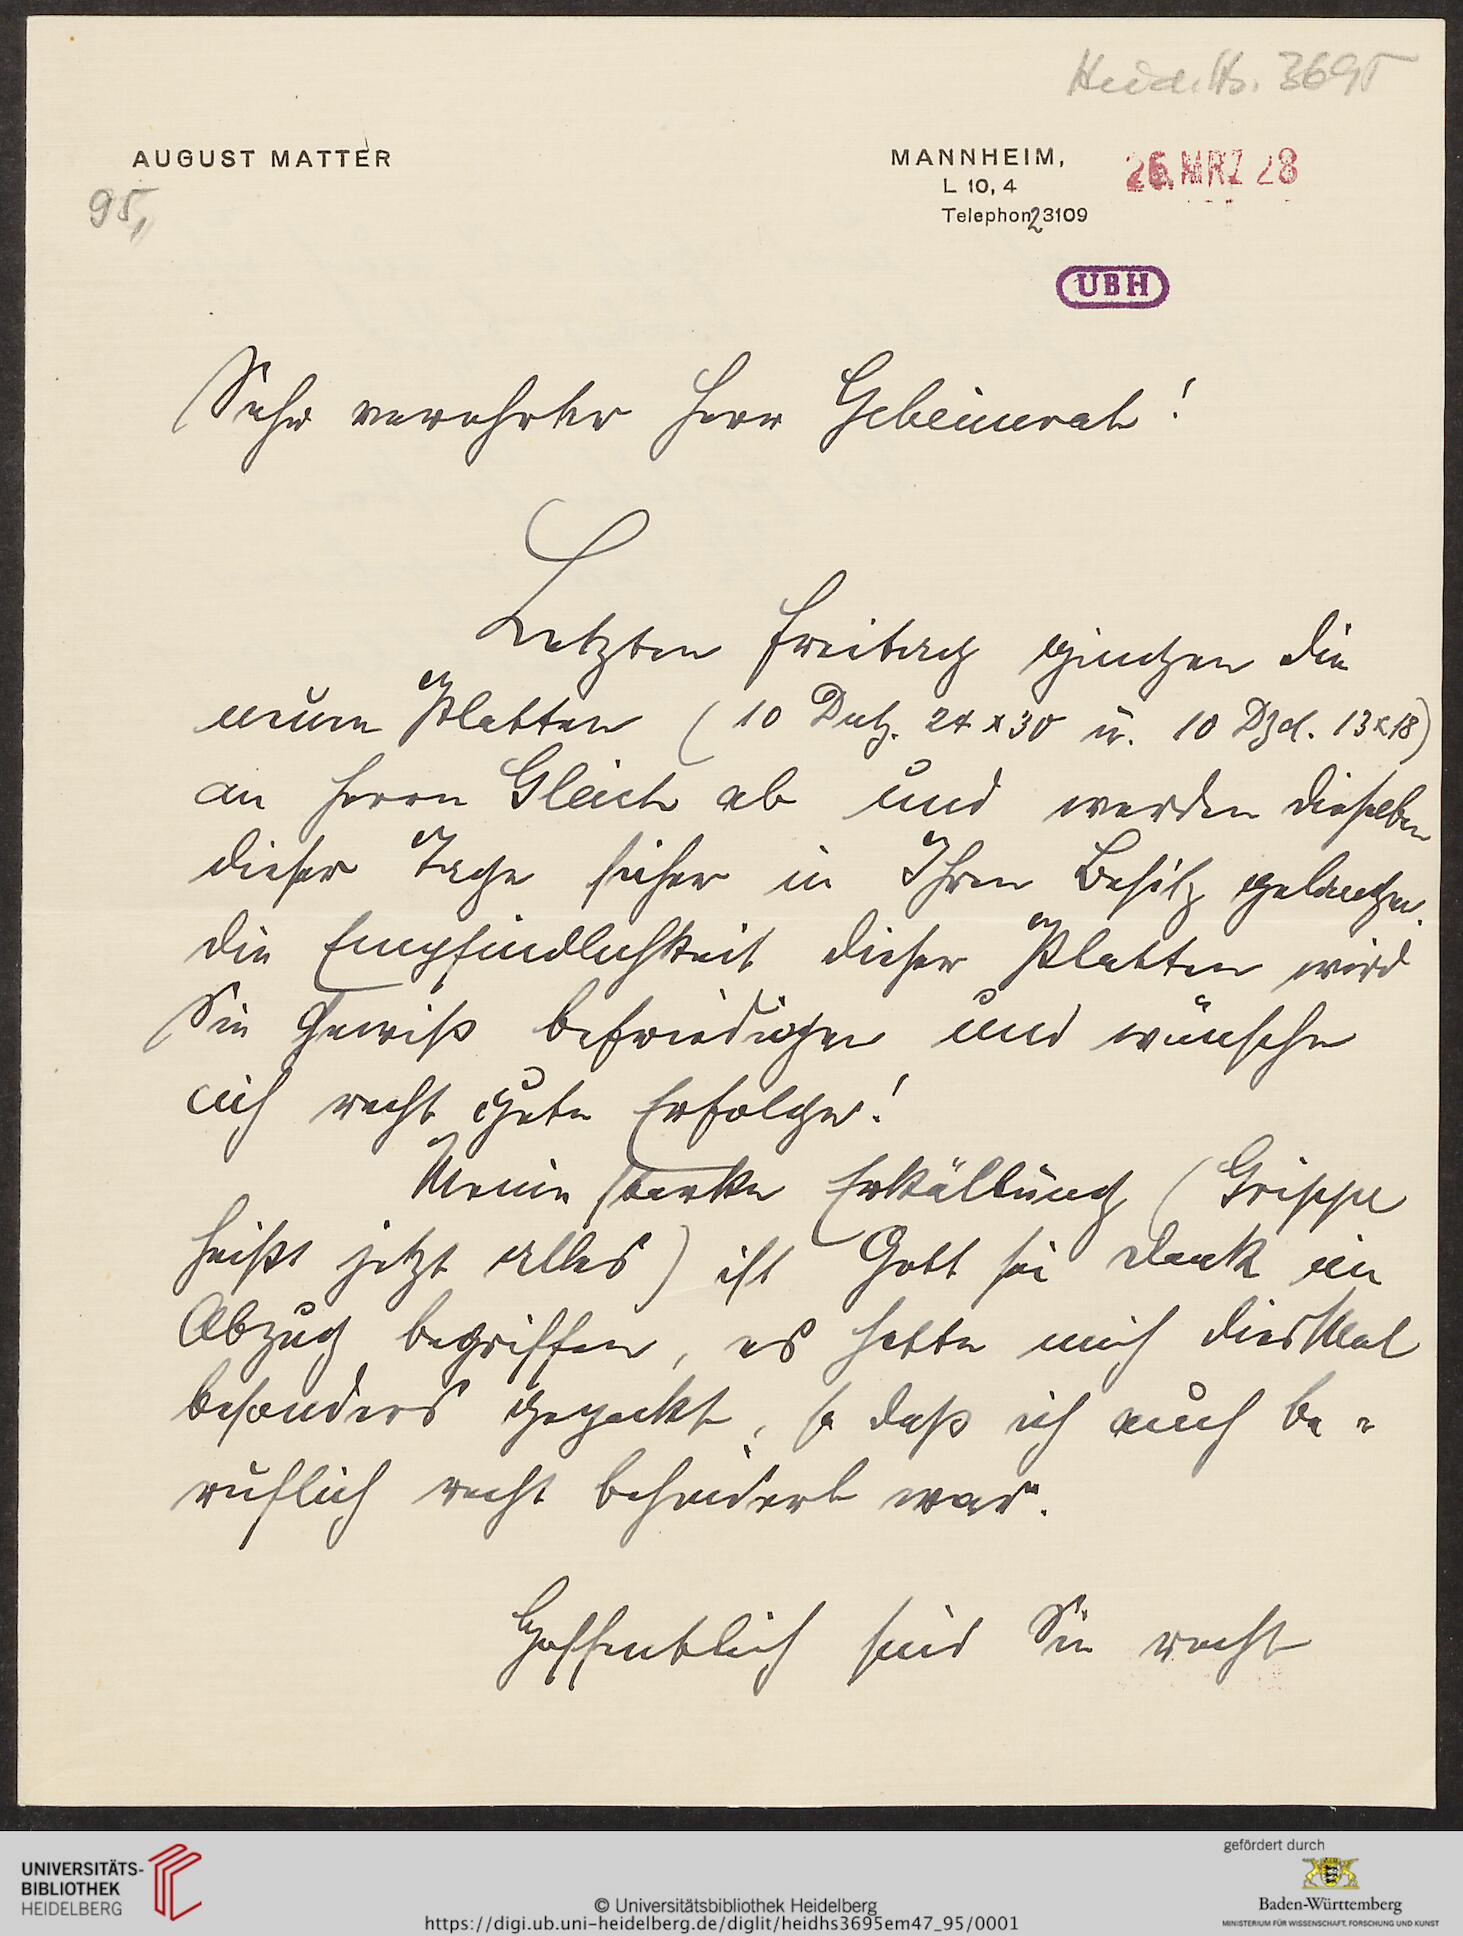 Heid. Hs. 3695
AUGUST MATTER
MANNHEIM,
26. MRZ 28
L 10, 4
Telephon 23109
95,
UBH
Sehr verehrter Herr Geheimrat!
Letzten Freitag gingen die
neuen Platten (10 Dutz. 24 x 30 u. 10 Dzd. 13x18)
an Herrn Gleich ab und werden dieselben
dieser Tage sicher in Ihren Besitz gelangen.
Die Empfindlichkeit dieser Platten wird
Sie gewiß befriedigen und wünsche
ich recht gute Erfolge!
Meine starke Erkältung (Grippe
heißt jetzt alles) ist Gott sei Dank im
Abzug begriffen, es hatte mich diesMal
besonders gepackt, so daß ich auch be-
ruflich recht behindert war.
Hoffentlich sind Sie recht
UNIVERSITÄTS-
BIBLIOTHEK
HEIDELBERG
© Universitätsbibliothek Heidelberg
https://digi.ub.uni-heidelberg.de/diglit/heidhs3695em47_95/0001
gefördert durch
Baden-Württemberg
MINISTERIUM FÜR WISSENSCHAFT, FORSCHUNG UND KUNST